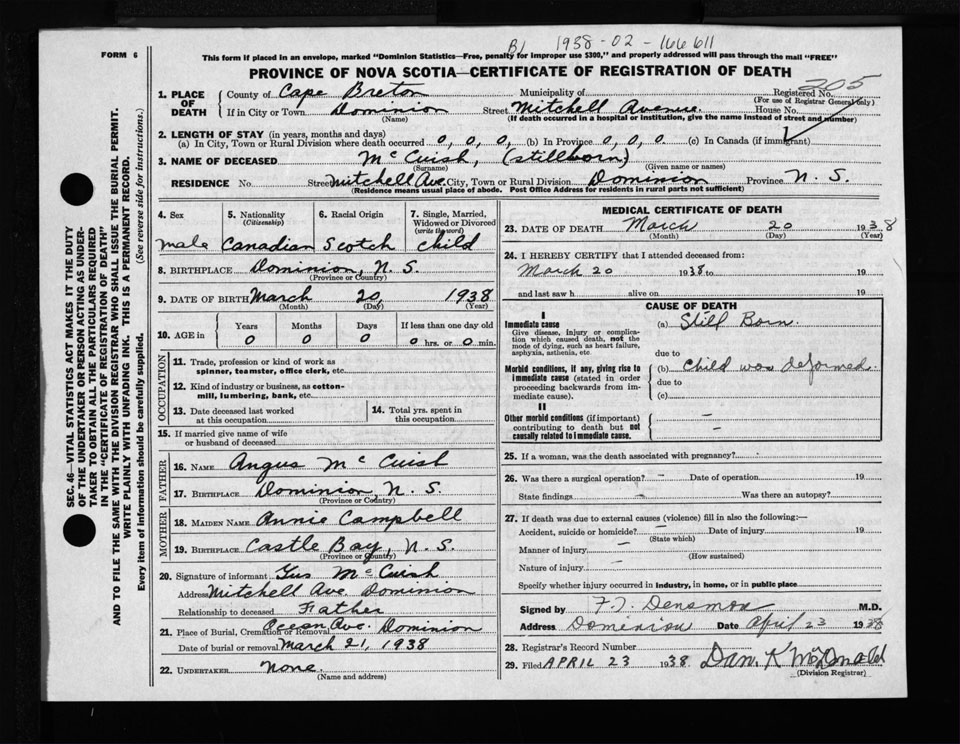 B1 1938-02-166611
FORM 6
This form if placed in an envelope, marked "Dominion Statistics—Free, penalty for improper use $300," and properly addressed will pass through the mail "FREE"
PROVINCE OF NOVA SCOTIA—CERTIFICATE OF REGISTRATION OF DEATH
205
1. PLACE OF DEATH
County of Cape Breton Municipality of Registered No.
(For use of Registrar General only)
If in City or Town Dominion Street Mitchell Avenue. House No.
(Name) (If death occurred in a hospital or institution, give the name instead of street and number)
2. LENGTH OF STAY (in years, months and days)
(a) In City, Town or Rural Division where death occurred 0, 0, 0, (b) In Province 0, 0, 0. (c) In Canada (if immigrant)
3. NAME OF DECEASED McCuish, (stillborn)
(Surname) (Given name or names)
RESIDENCE No. Street Mitchell Ave. City, Town or Rural Division Dominion Province N. S.
(Residence means usual place of abode. Post Office Address for residents in rural parts not sufficient)
SEC. 46—VITAL STATISTICS ACT MAKES IT THE DUTY
OF THE UNDERTAKER OR PERSON ACTING AS UNDER-
TAKER TO OBTAIN ALL THE PARTICULARS REQUIRED
IN THE "CERTIFICATE OF REGISTRATION OF DEATH"
AND TO FILE THE SAME WITH THE DIVISION REGISTRAR WHO SHALL ISSUE THE BURIAL PERMIT.
WRITE PLAINLY WITH UNFADING INK. THIS IS A PERMANENT RECORD.
Every item of information should be carefully supplied. (See reverse side for instructions.)
4. Sex 5. Nationality (Citizenship) 6. Racial Origin 7. Single, Married, Widowed or Divorced (write the word)
male Canadian Scotch child
8. BIRTHPLACE Dominion, N. S.
(Province or Country)
9. DATE OF BIRTH March 20, 1938
(Month) (Day) (Year)
10. AGE in Years Months Days If less than one day old
0 0 0 0 hrs. or 0 min.
OCCUPATION
11. Trade, profession or kind of work as
spinner, teamster, office clerk, etc.
12. Kind of industry or business, as cotton-
mill, lumbering, bank, etc.
13. Date deceased last worked
at this occupation
14. Total yrs. spent in
this occupation
15. If married give name of wife
or husband of deceased
FATHER
16. NAME Angus McCuish
17. BIRTHPLACE Dominion, N. S.
(Province or Country)
MOTHER
18. MAIDEN NAME Annie Campbell
19. BIRTHPLACE Castle Bay, N. S.
(Province or Country)
20. Signature of informant Gus McCuish
Address Mitchell Ave. Dominion
Relationship to deceased Father
21. Place of Burial, Cremation or Removal Ocean Ave. Dominion
Date of burial or removal March 21, 1938
22. UNDERTAKER None.
(Name and address)
MEDICAL CERTIFICATE OF DEATH
23. DATE OF DEATH March 20 1938
(Month) (Day) (Year)
24. I HEREBY CERTIFY that I attended deceased from:
March 20 1938 to 19
and last saw h alive on 19
CAUSE OF DEATH
I
Immediate cause (a) Still Born.
Give disease, injury or complica-
tion which caused death, not the
mode of dying, such as heart failure,
asphyxia, asthenia, etc.
due to
Morbid conditions, if any, giving rise to (b) child was deformed.
immediate cause (stated in order due to
proceeding backwards from im-
mediate cause). (c)
II
Other morbid conditions (if important)
contributing to death but not –
causally related to immediate cause.
25. If a woman, was the death associated with pregnancy?
26. Was there a surgical operation? – Date of operation 19
State findings Was there an autopsy?
27. If death was due to external causes (violence) fill in also the following:—
Accident, suicide or homicide? – Date of injury 19
(State which)
Manner of injury –
(How sustained)
Nature of injury –
Specify whether injury occurred in industry, in home, or in public place
Signed by F. T. Densmore M.D.
Address Dominion Date April 23 1938
28. Registrar's Record Number
29. Filed APRIL 23 1938. Dan. K McDonald
(Division Registrar)